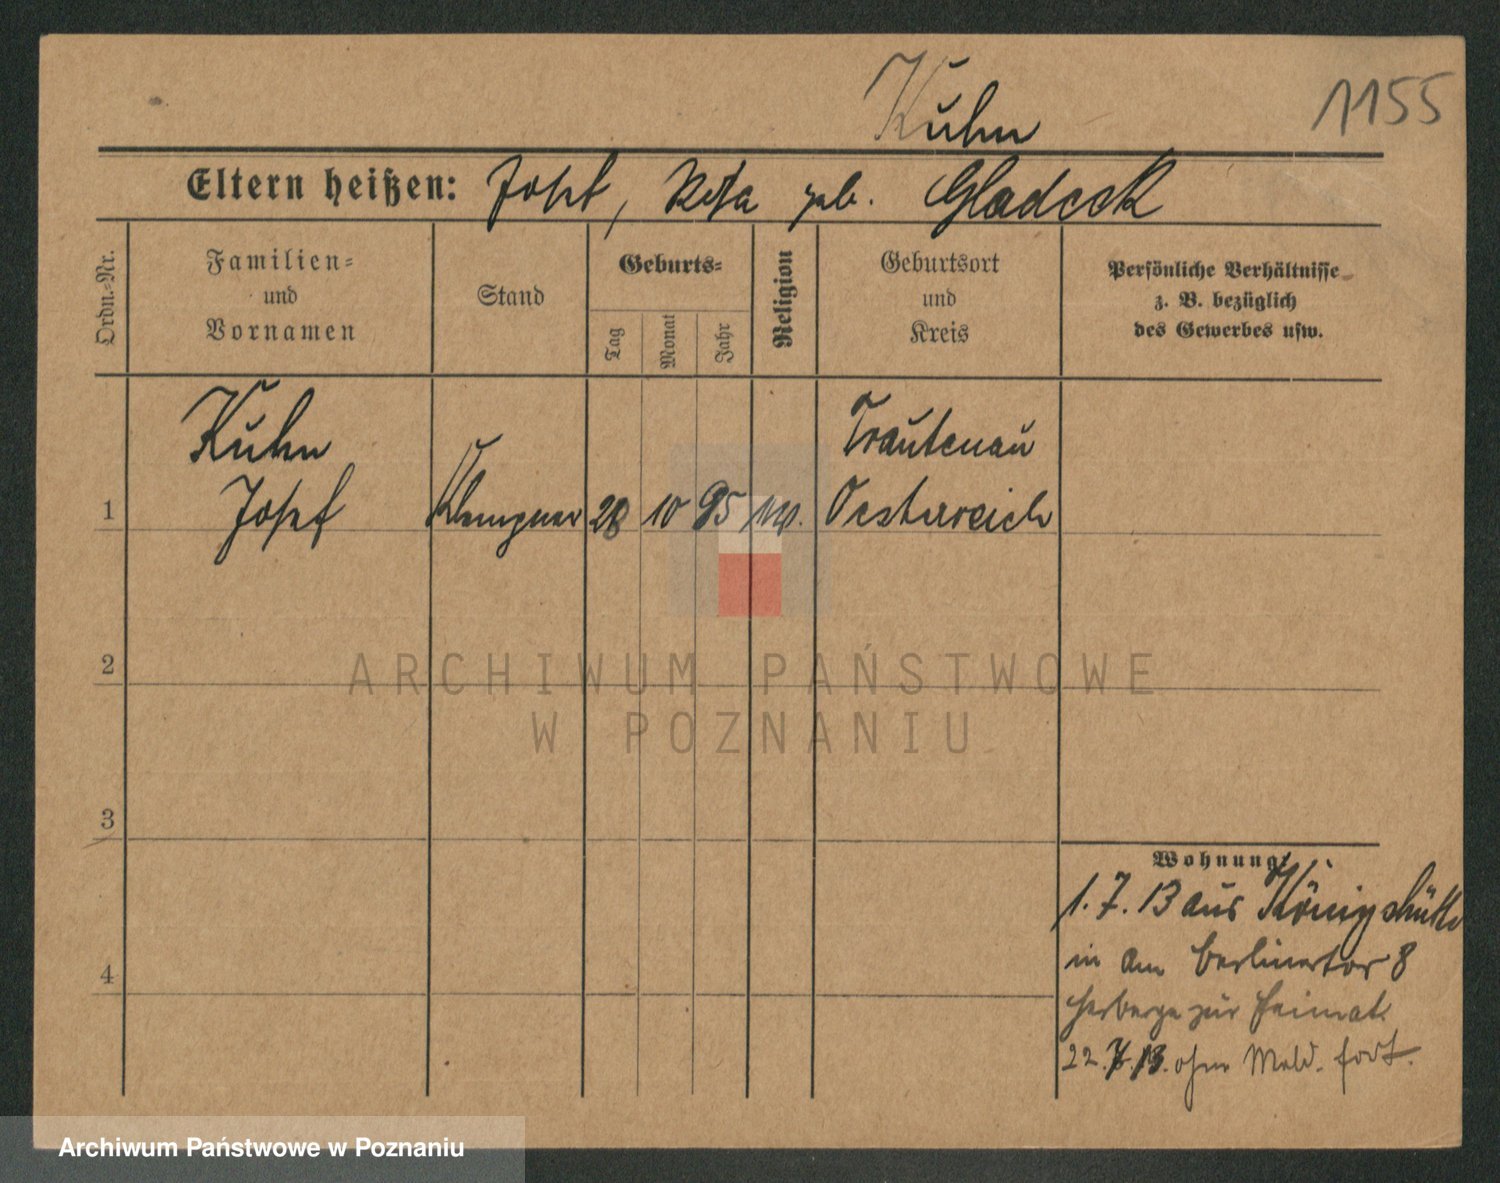 Kuhn
1155
Eltern heißen: Josef, geb. Gladeck
Ordn.-Nr.
Familien- und Vornamen
Stand
Geburts-
Tag
Monat
Jahr
Religion
Geburtsort und Kreis
Persönliche Verhältnisse
z. B. bezüglich
des Gewerbes usw.
Kuhn Trautenau
1 Josef Klempner 28 10 95 Oesterreich
2
ARCHIWUM PAŃSTWOWE
W POZNANIU
3
Wohnung:
1.7.13 aus Königshütte
in Am Berlinertor 8
4
Herberge zur Heimat.
22.7.13. ohne Meld. fort.
Archiwum Państwowe w Poznaniu